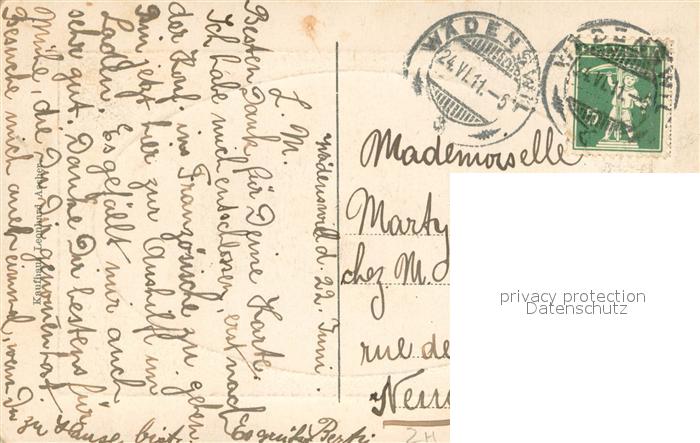 Wädenswil d. 22. Juni.
L. M.
Besten Dank für Deine Karte.
Ich habe mich entschlossen, erst nach
der Konf. ins Französische zu gehen.
Bin jetzt hier zur Aushilf im
Laden. Es gefällt mir auch
sehr gut. Danke Dir bestens für
Mühe, die Du Dir genommen hast.
Besuche mich auch einmal, wenn Du
zu Hause bist.
Es grüßt Berti
Kaufhaus Leonhard
WÄDENSWIL
24.VI.11.-5
WÄDENSWIL
24.VI.11.-5
Mademoiselle
Marty
chez M.
rue de
privacy protection
Datenschutz